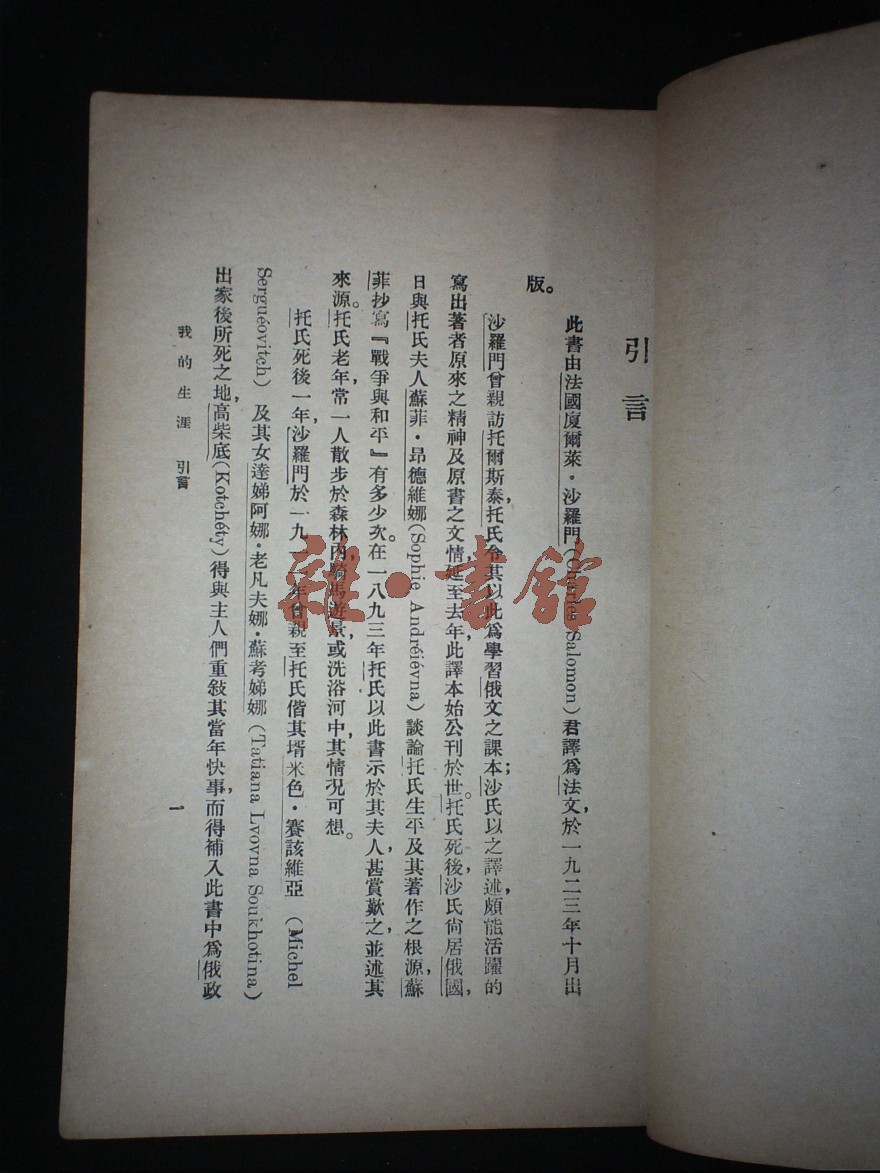 引言
此書由法國廈爾萊·沙羅門(Charles Salomon)君譯爲法文，於一九二三年十月出
版。
沙羅門曾親訪托爾斯泰，托氏令其以此爲學習俄文之課本；沙氏以之譯述，頗能活躍的
寫出著者原來之精神及原書之文情，延至去年，此譯本始公刊於世。托氏死後，沙氏尙居俄國，
日與托氏夫人蘇菲·昻德維娜(Sophie Andréiévna)談論托氏生平及其著作之根源，蘇
菲抄寫『戰爭與和平』有多少次。在一八九三年托氏以此書示於其夫人，甚賞歎之，並述其
來源。托氏老年，常一人散步於森林內，騎馬遊景，或洗浴河中，其情况可想。
托氏死後一年，沙羅門於一九一一年曾親至托氏偕其壻米色·賽該維亞 (Michel
Serguéovitch) 及其女達娣阿娜·老凡夫娜·蘇考娣娜 (Tatiana Lvovna Soukhotina)
出家後所死之地，高柴底(Kotchéty)得與主人們重敍其當年快事，而得補入此書中爲俄政
我的生涯 引言
一
雜·書館